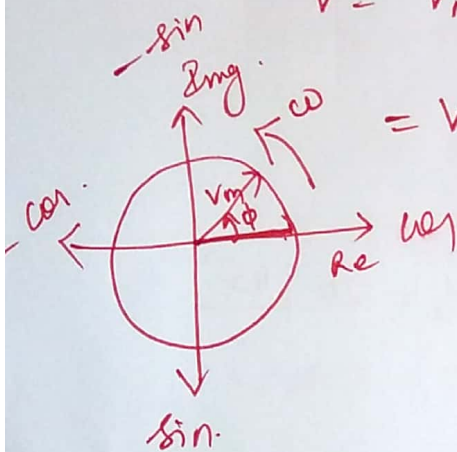 V = V
- sin
Img.
ω
= V
- cos.
Vm
ϕ
Re
cos
sin.